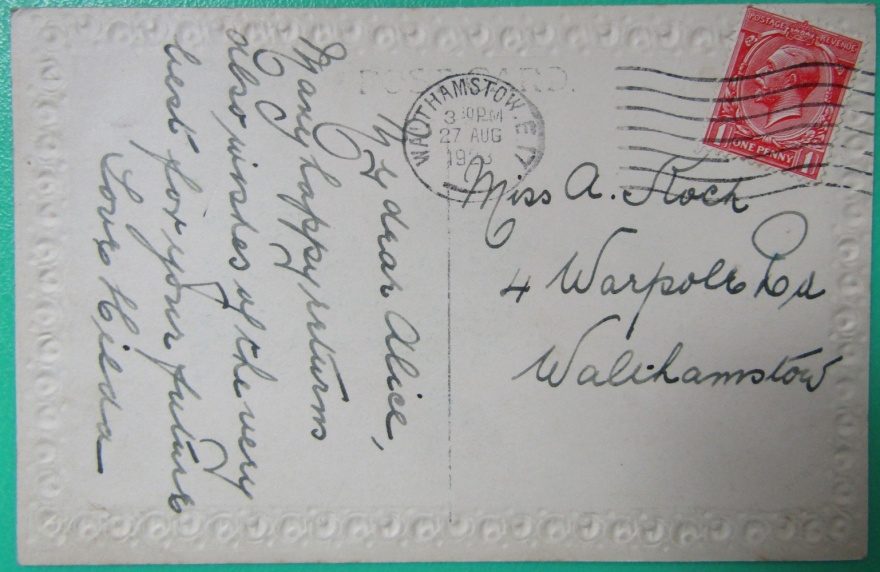 POST CARD.
WALTHAMSTOW. E.17
3 30 PM
27 AUG
POSTAGE REVENUE
ONE PENNY
1 1
Miss A. Rock
4 Warpole Rd
Walthamstow
My dear Alice,
Many happy returns
also wishes of the very
best for your future
Love Hilda